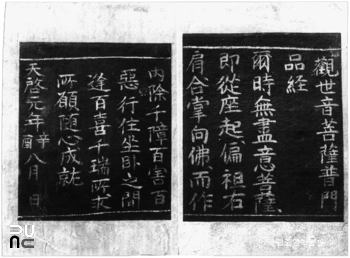 觀世音菩薩普門
品經
爾時無盡意菩薩
即從座起偏袒右
肩合掌向佛而作
內除千障百害百
惡行住坐臥之間
逢百喜千瑞所求
所願隨心成就
天啓元年辛酉八月 日